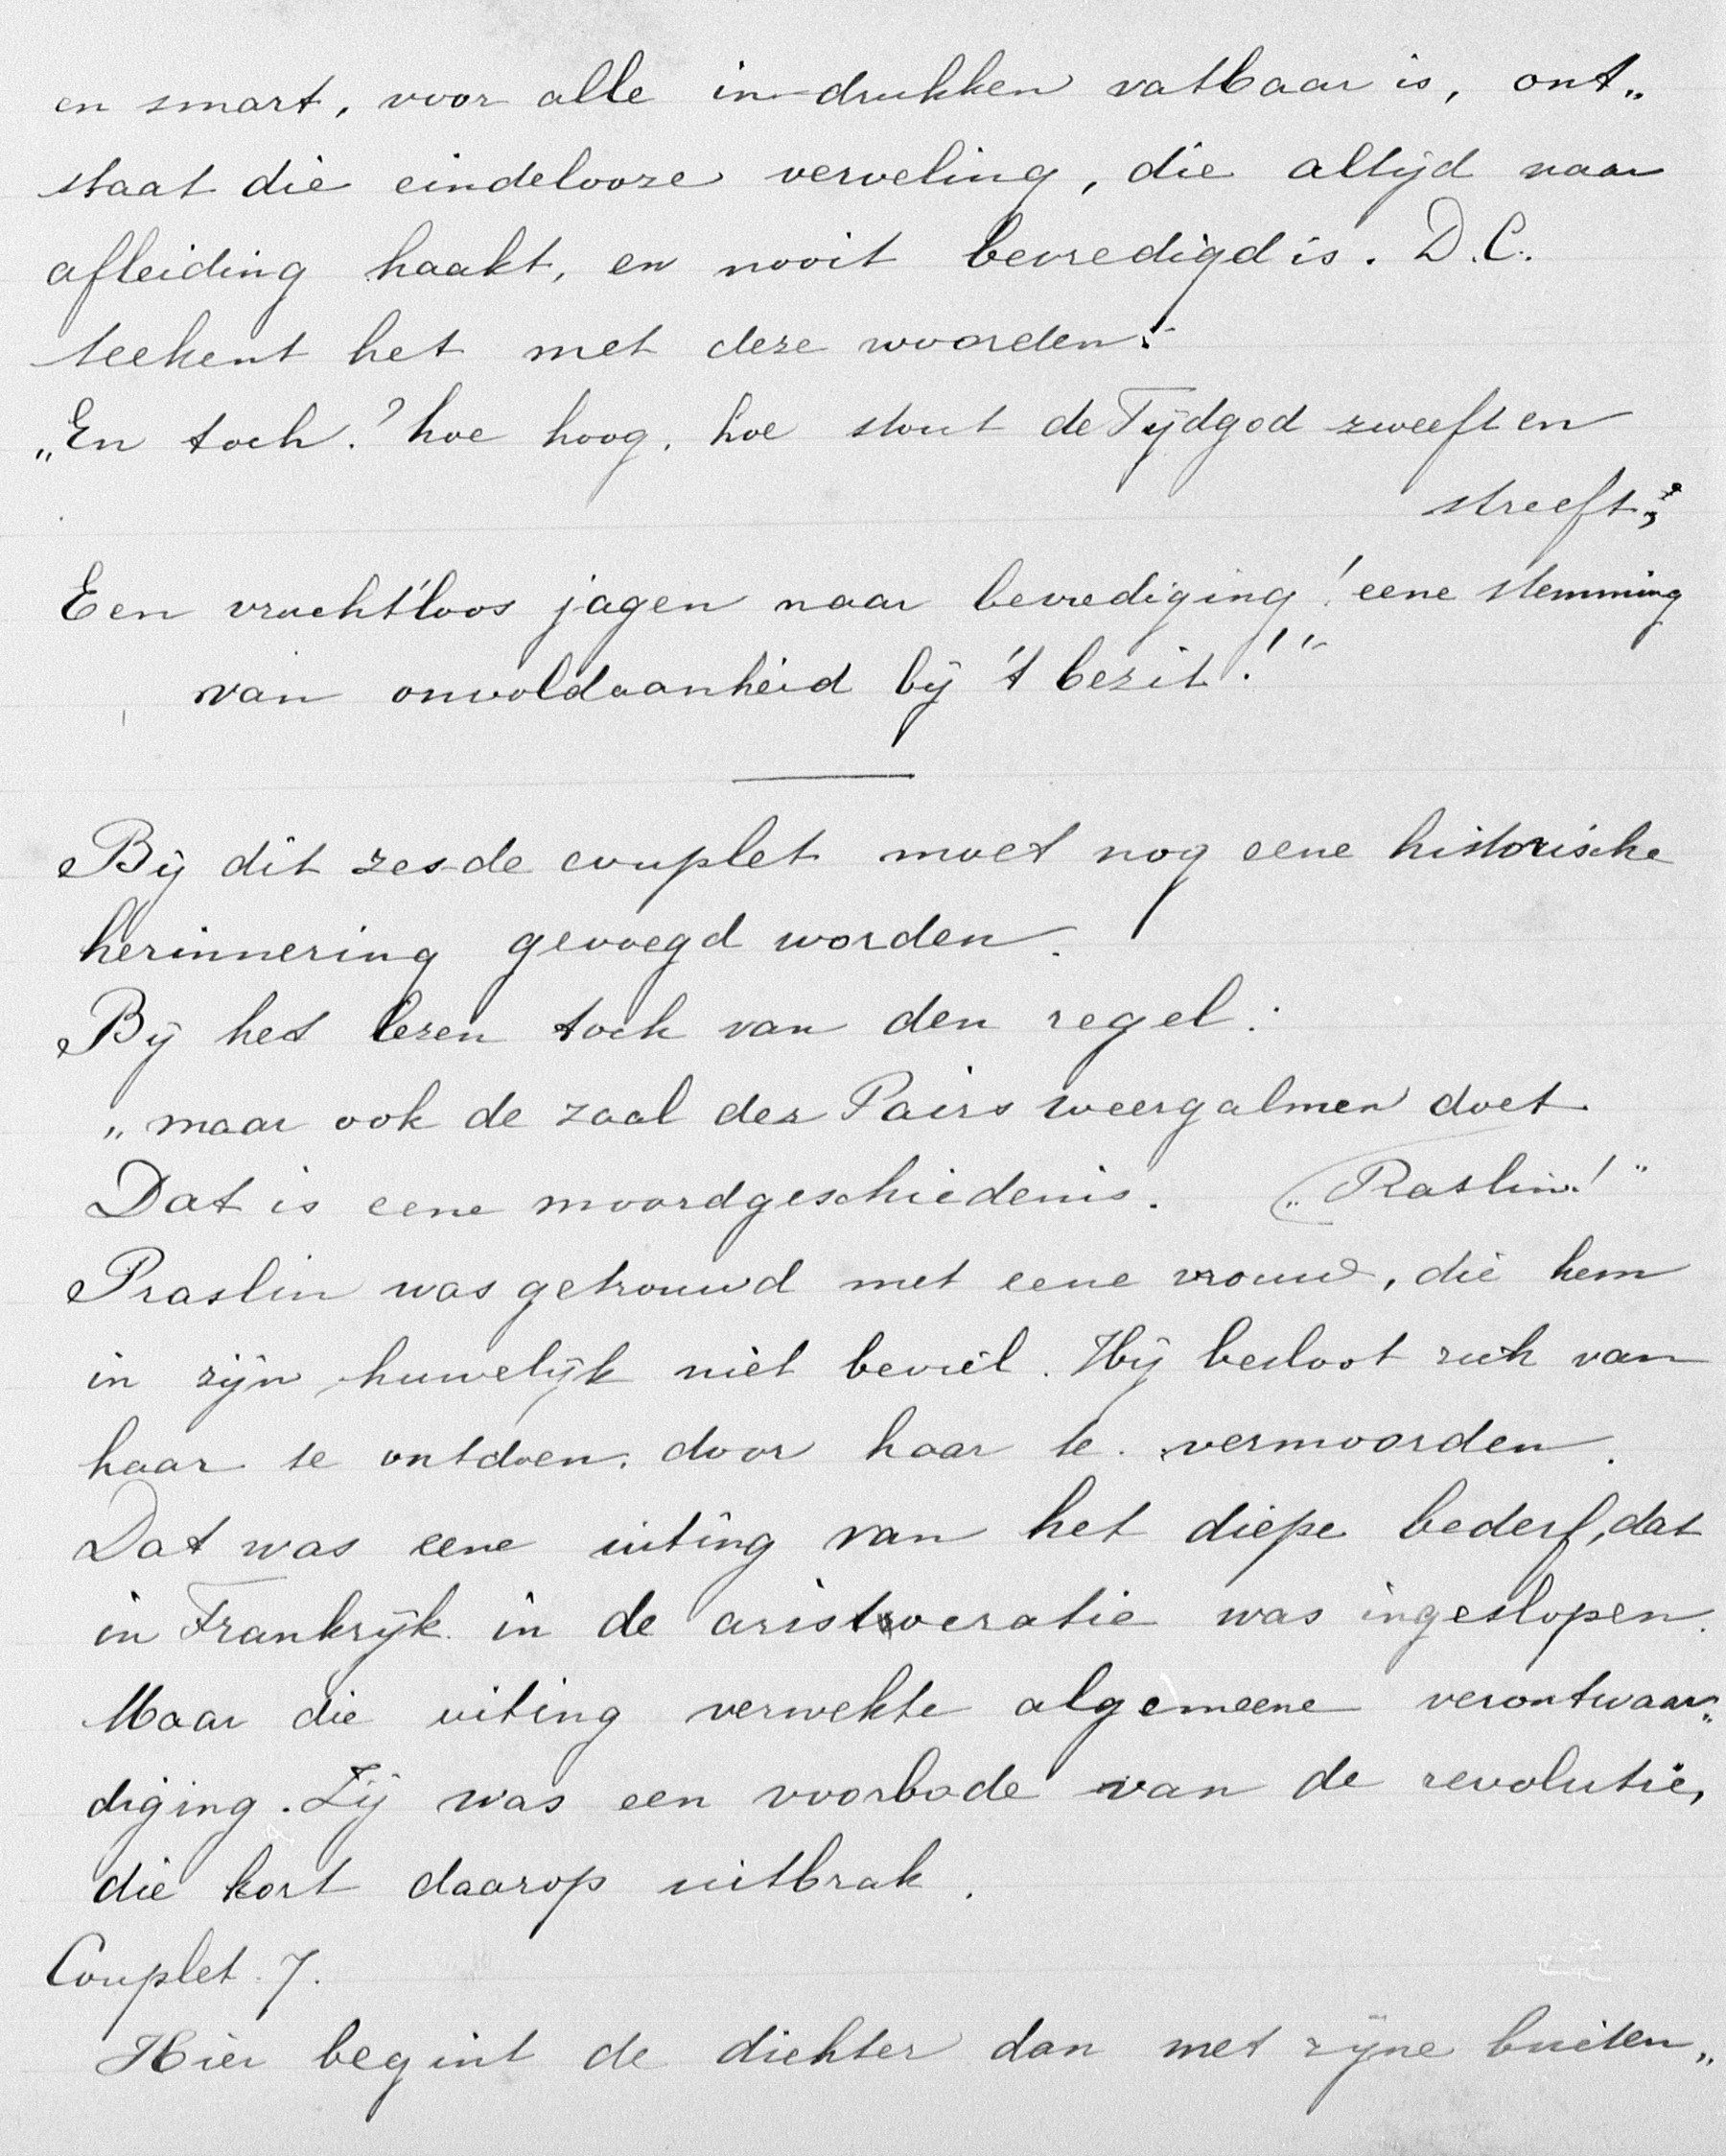 en smart, voor alle in-drukken vatbaar is, ont„
staat die eindelooze verveling, die altijd naar
afleiding haakt, en nooit bevredigd is. D.C.
teekent het met deze woorden:
„En toch? hoe hoog, hoe stout de Tijdgod zweeft en
streeft;
Een vrucht'loos jagen naar bevrediging! eene stemming
van onvoldaanheid bij 't bezit!"
Bij dit zesde couplet moet nog eene historische
herinnering gevoegd worden.
Bij het lezen toch van den regel:
„maar ook de zaal der Pairs weergalmen doet
Dat is eene moordgeschiedenis. („Raslin!"
Praslin was getrouwd met eene vrouw, die hem
in zijn huwelijk niet beviel. Hij besloot zich van
haar te ontdoen, door haar te vermoorden.
Dat was eene uiting van het diepe bederf, dat
in Frankrijk in de aristrocratie was ingeslopen.
Maar die uiting verwekte algemeene verontwaar„
diging. Zij was een voorbode van de revolutie,
die kort daarop uitbrak.
Couplet 7.
Hier begint de dichter dan met zijne buiten„